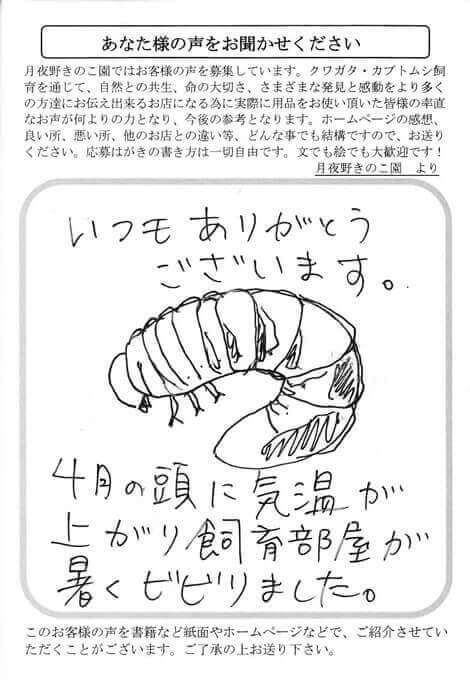 あなた様の声をお聞かせください
月夜野きのこ園ではお客様の声を募集しています。クワガタ・カブトムシ飼
育を通じて、自然との共生、命の大切さ、さまざまな発見と感動をより多く
の方達にお伝え出来るお店になる為に実際に用品をお使い頂いた皆様の率直
なお声が何よりの力となり、今後の参考となります。ホームページの感想、
良い所、悪い所、他のお店との違い等、どんな事でも結構ですので、お送り
ください。応募はがきの書き方は一切自由です。文でも絵でも大歓迎です！
月夜野きのこ園 より
いつもありがとう
ございます。
4月の頭に気温が
上がり飼育部屋が
暑くビビりました。
このお客様の声を書籍など紙面やホームページなどで、ご紹介させてい
ただくことがございます。ご了承の上お送り下さい。